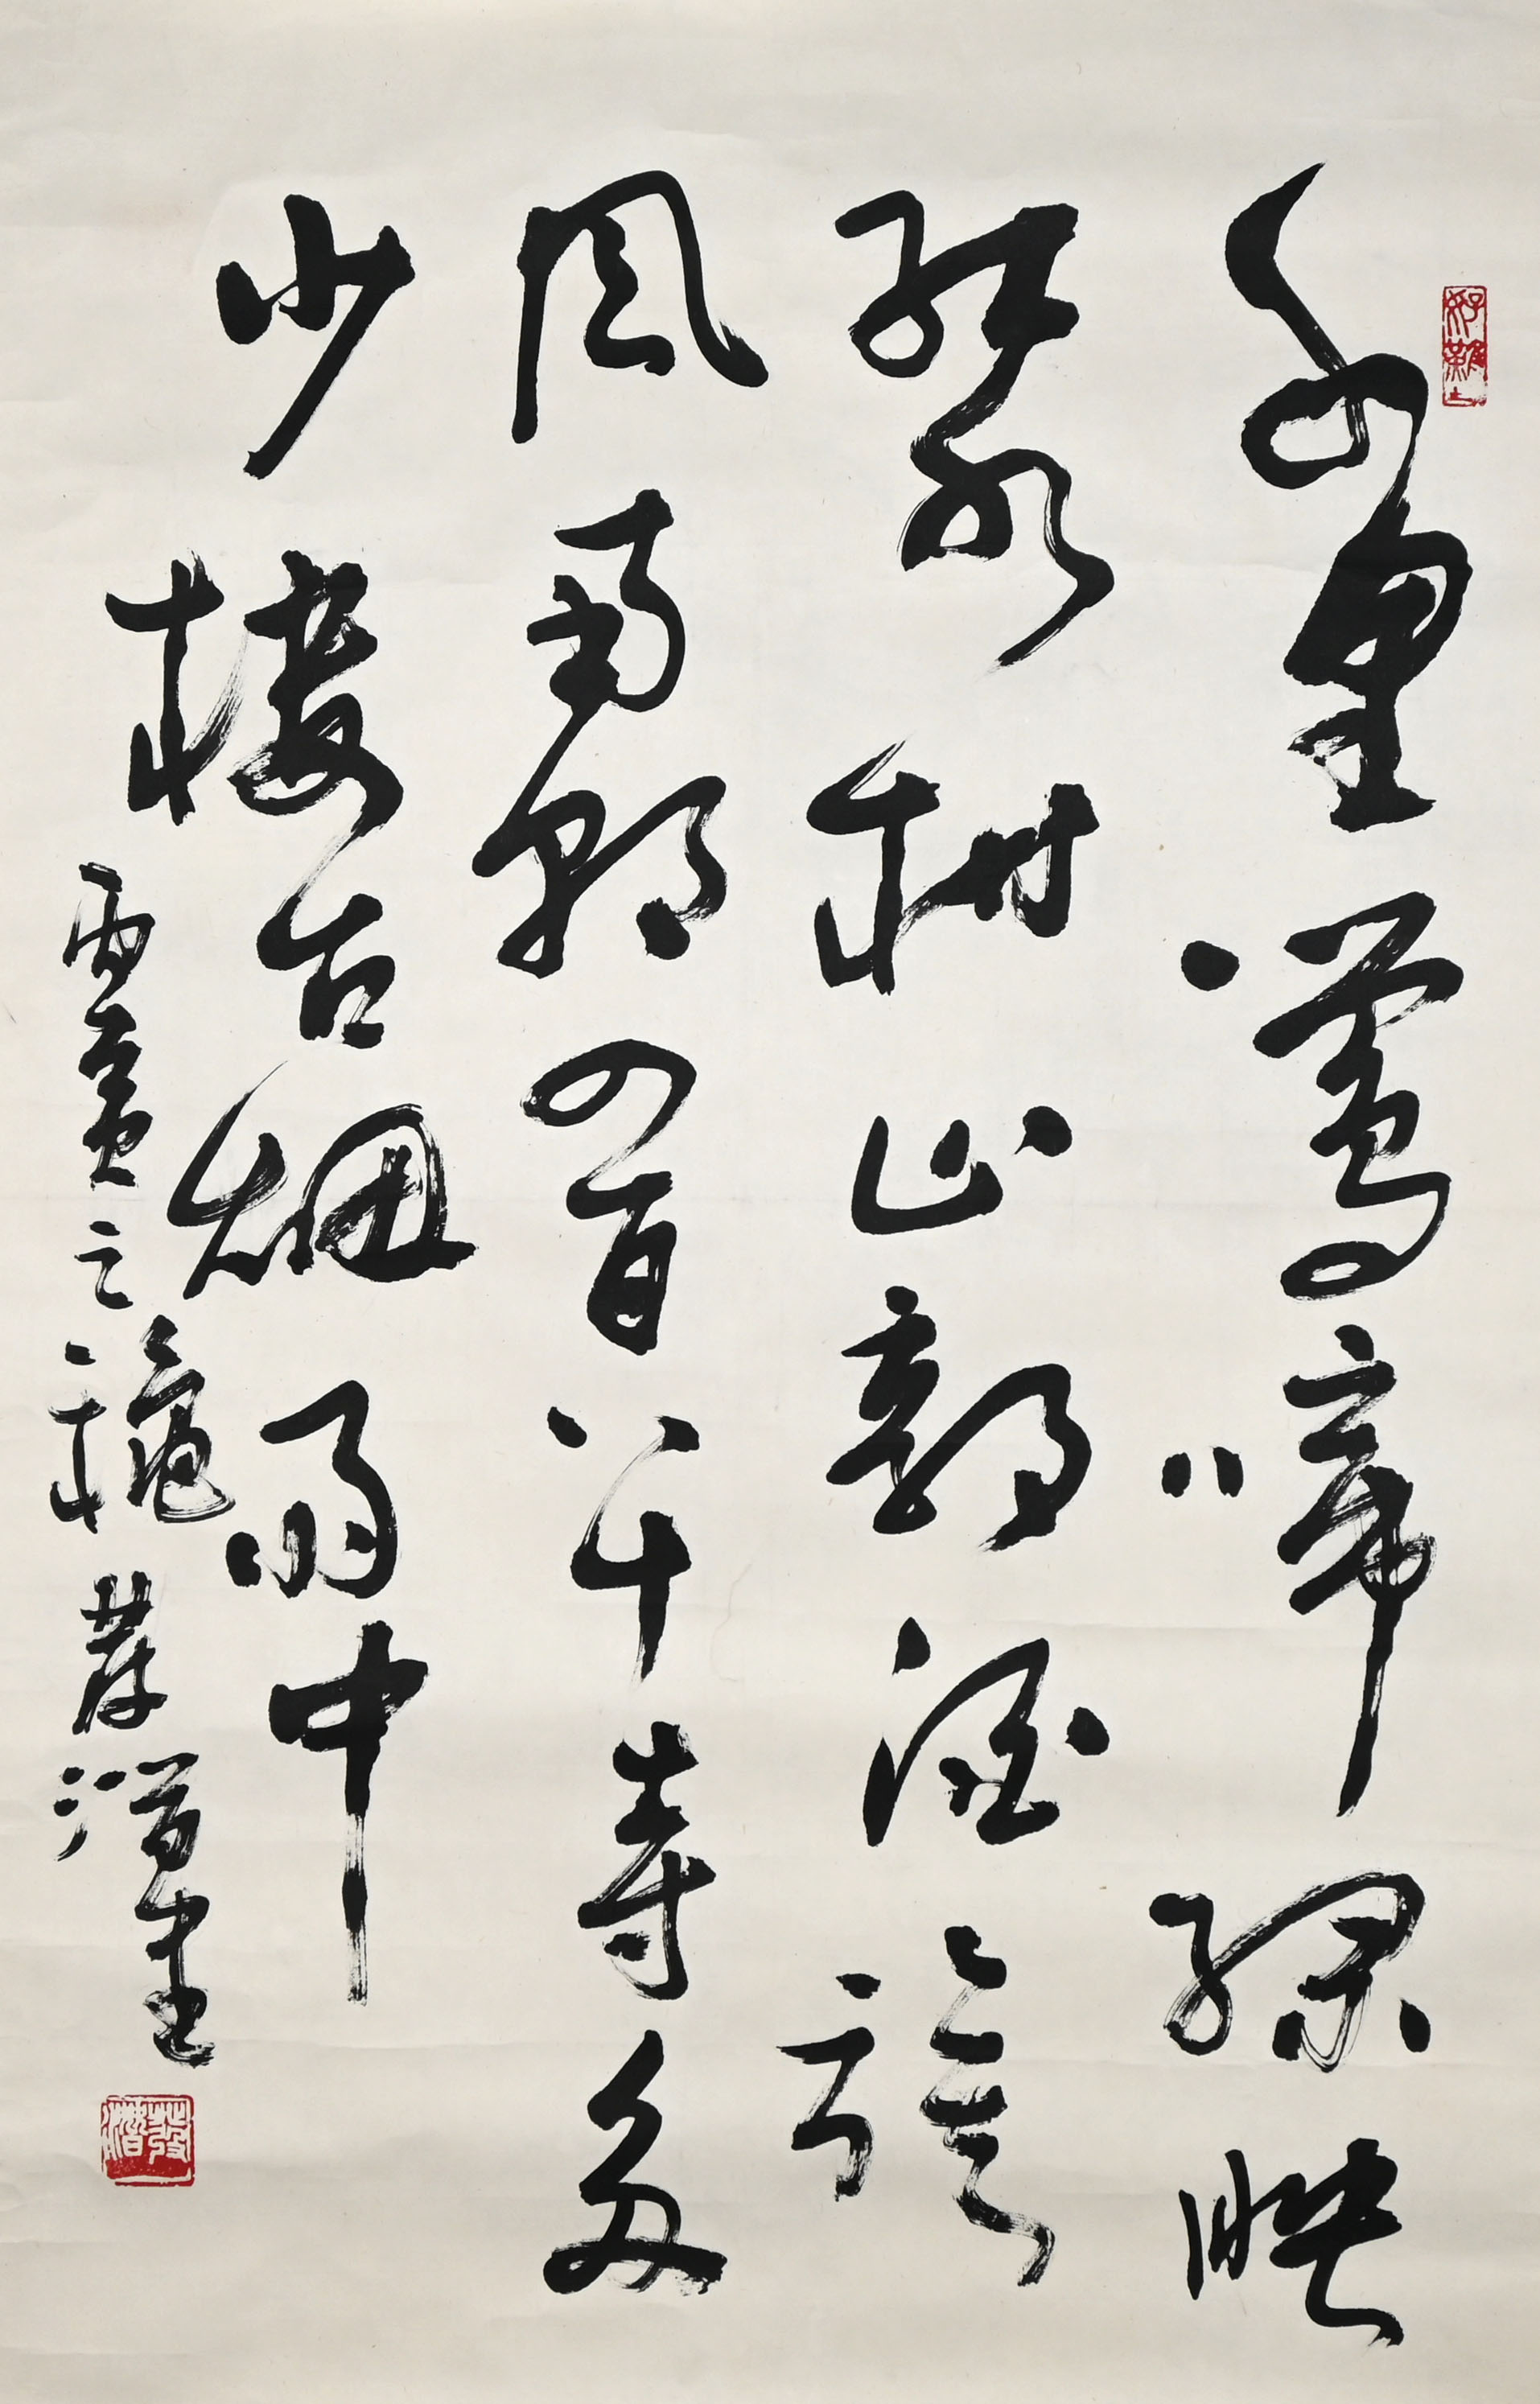 千里鶯啼綠映
紅水村山郭酒旗
風南朝四百八十寺多
少樓台烟雨中
丙寅之穐 潛書